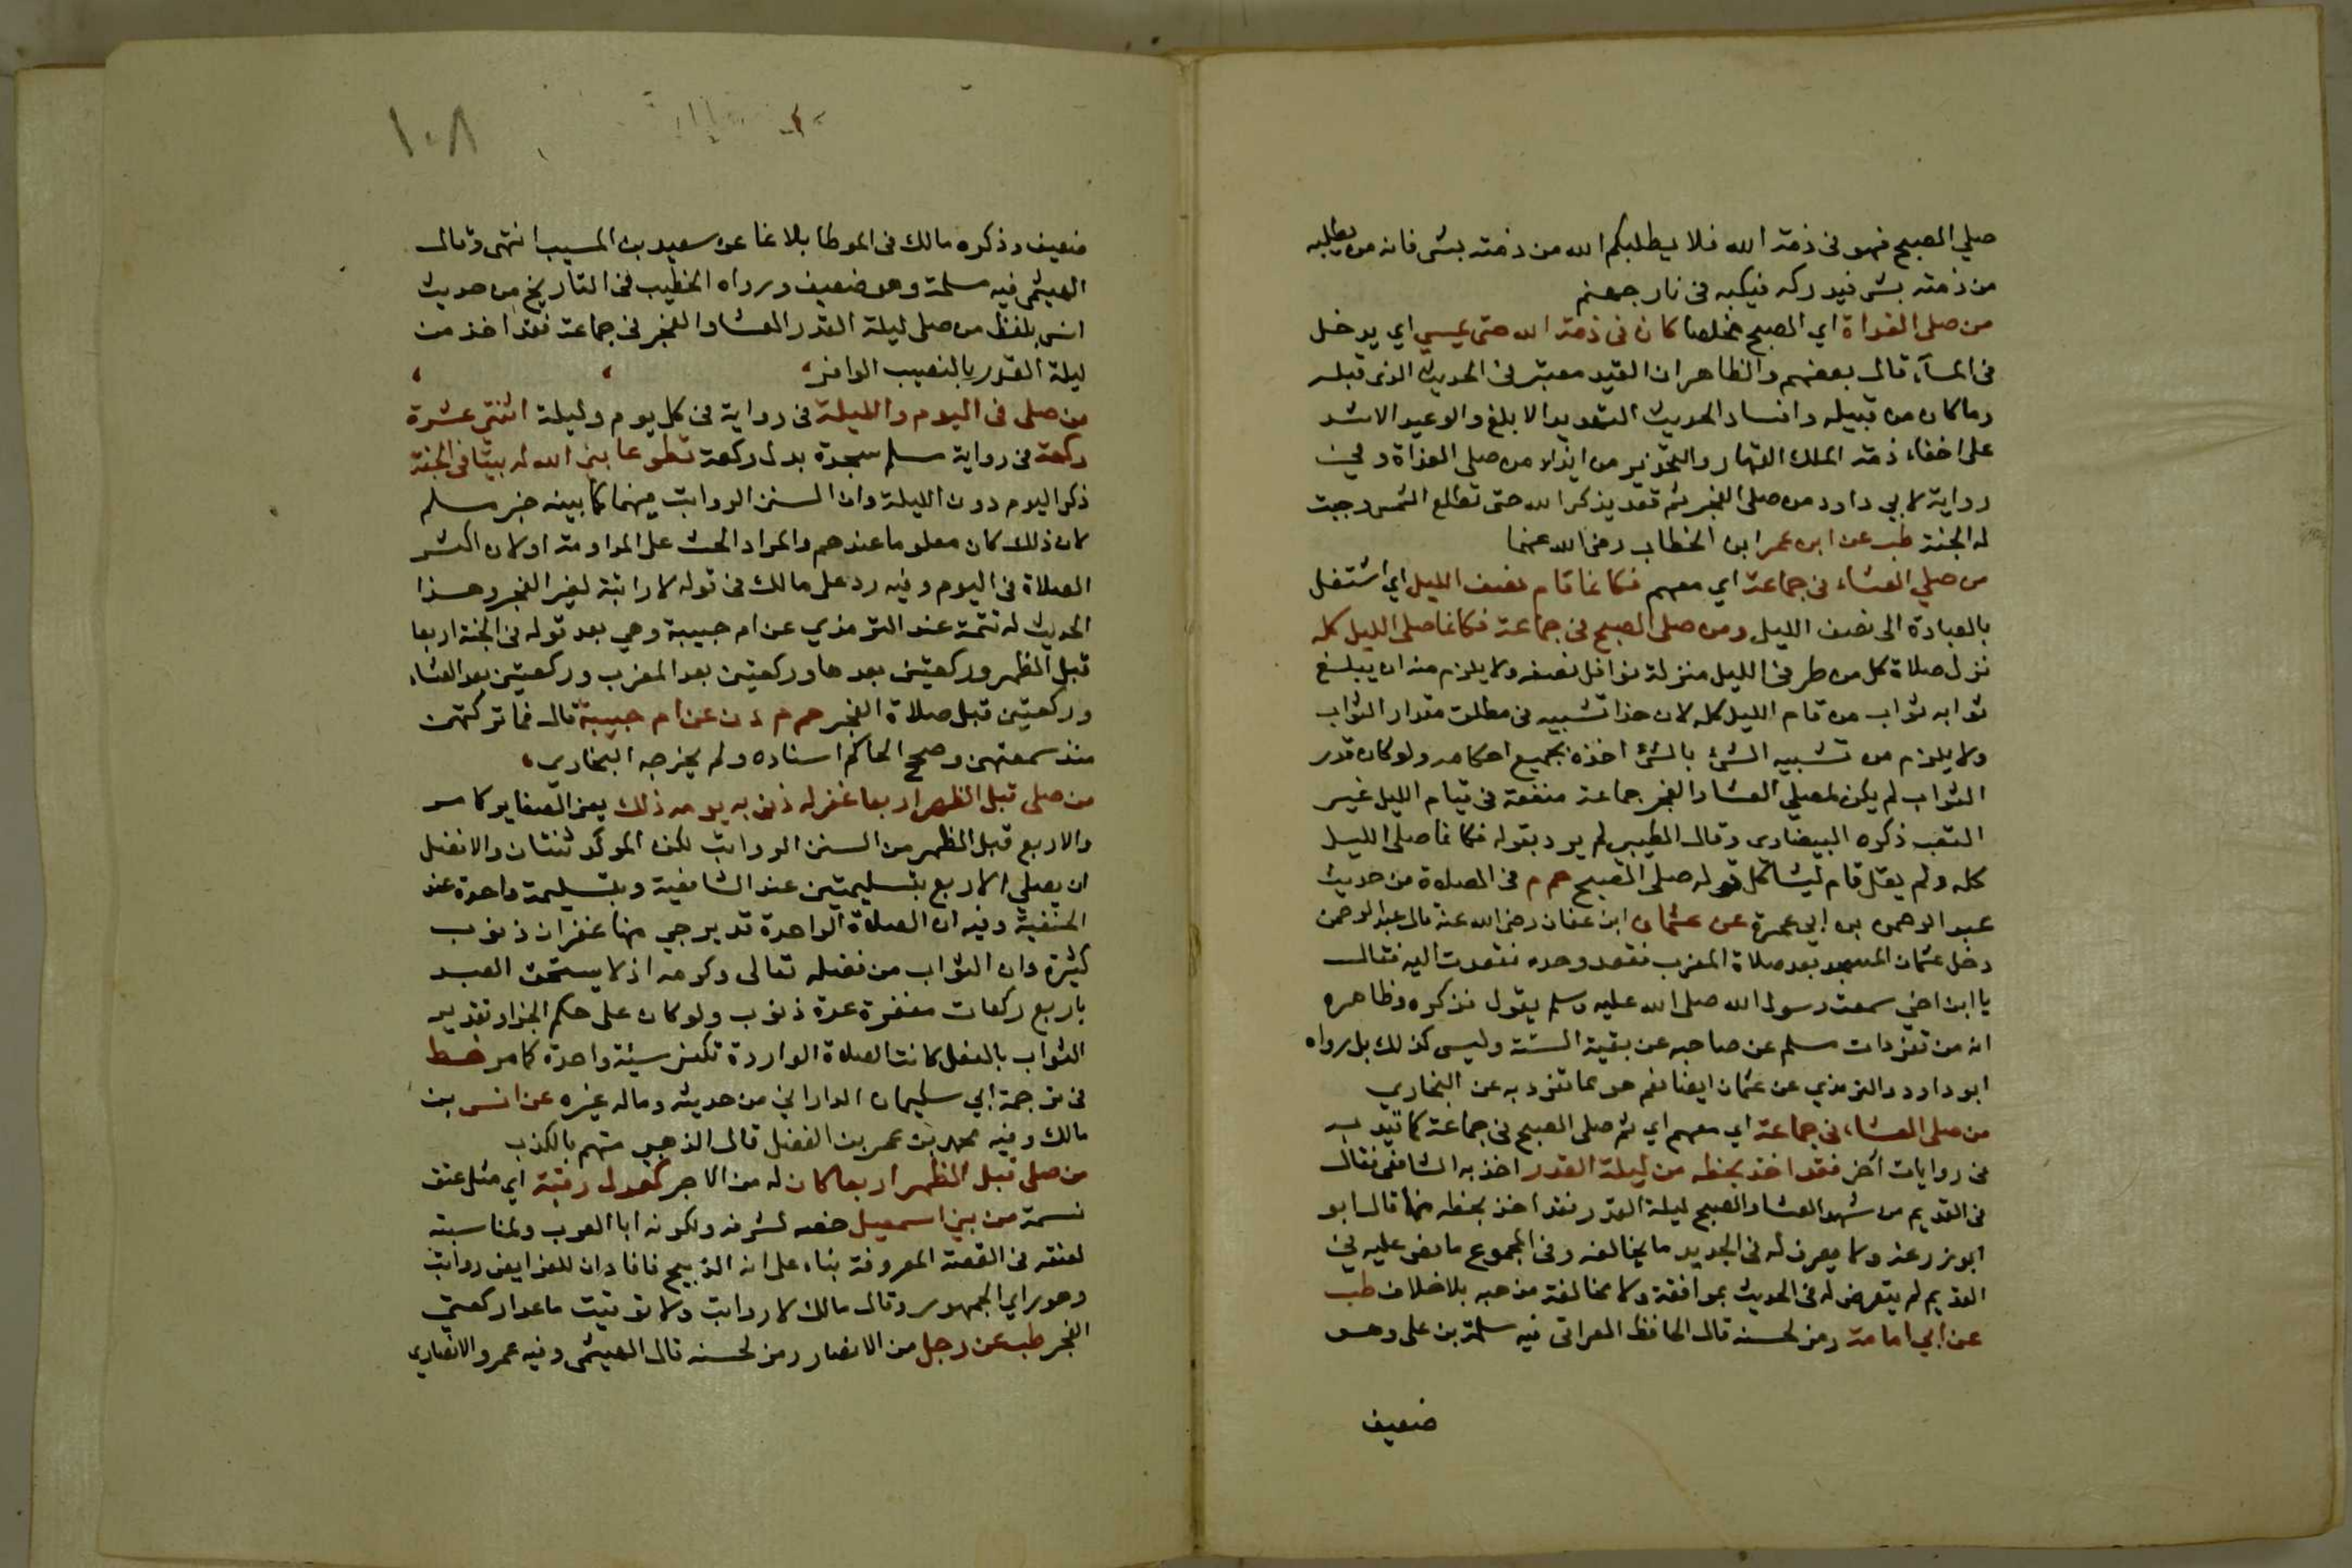 صلي الصبح فهو في ذمة الله فلا يطلبكم الله من ذمته بشي فانه من يطلبه
من ذمته بشي فيدركه فيكبه في نار جهنم
من صلى الغداة اي الصبح مخلصا كان في ذمة الله حتى يمسي اي يدخل
في المسآء قال بعضهم والظاهر ان القيد معتبر في الحديث الذي قبله
وما كان من قبيله الحديث التهديد الابلغ والوعيد الاشد
على اخفاء ذمة الملك القهار والتحذير من ايذاء من صلى الغداة وفي
رواية لابي داود من صلى الفجر ثم قعد يذكر الله حتى تطلع الشمس وجبت
له الجنة طب عن ابن عمر ابن الخطاب رضي الله عنهما
من صلي العشاء في جماعة اي معهم فكانما قام نصف الليل اي اشتغل
بالعبادة الى نصف الليل ومن صلى الصبح في جماعة فكانما صلى الليل كله
نزل صلاة كل من طرفي الليل منزلة نوافل نصفه ولا يلزم منه ان يبلغ
ثوابه ثواب من قام الليل كله لان هذا تشبيه في مطلق مقدار الثواب
ولا يلزم من تشبيه الشئ بالشئ اخذه بجميع احكامه ولو كان قدر
الثواب لم يكن لمصلي العشا والفجر جماعة منفعة في قيام الليل غير
التعب ذكره البيضاوي وقال الطيبي لم يرد بقوله فكانما صلى الليل
كله ولم يقل قام ليشاكل قوله صلى الصبح حم م في الصلاة من حديث
عبد الرحمن بن ابي عمرة عن عثمان ابن عفان رضي الله عنه قال عبد الرحمن
دخل عثمان المسجد بعد صلاة المغرب فقعد وحده فقعدت اليه فقال
يا ابن اخي سمعت رسول الله صلى الله عليه وسلم يقول فذكره وظاهره
انه من تفردات مسلم عن صاحبه عن بقية الستة وليس كذلك بل رواه
ابو داود والترمذي عن عثمان ايضا نعم هو مما تفرد به عن البخاري
من صلى العشاء في جماعة اي معهم اي ثم صلى الصبح في جماعة كما قيد به
في روايات أخر فقد اخذ بحظه من ليلة القدر اخذ به الشافعي فقال
في القديم من شهد العشا والصبح ليلة القدر فقد اخذ بحظه منها قال ابو
ابو زرعة ولا يعرف له في الجديد ما يخالفه وفي المجموع ما نص عليه في
القديم لم يتعرض له في الحديث بموافقة ولا مخالفة مذهبه بلا خلاف طب
عن ابي امامة رمز لحسنه قال الحافظ العراقي فيه سلمة بن علي وهو
ضعيف
١٠٨
ضعيف وذكره مالك في الموطا بلاغا عن سعيد بن المسيب انتهى وقال
الهيثمي فيه مسلمة وهو ضعيف ورواه الخطيب في التاريخ من حديث
انس بلفظ من صلى ليلة القدر العشا والفجر في جماعة فقد اخذ من
ليلة القدر بالنصيب الوافر
من صلى في اليوم والليلة في رواية في كل يوم وليلة اثنتي عشرة
ركعة في رواية مسلم سجدة بدل ركعة تطوعا بني الله له بيتا في الجنة
ذكر اليوم دون الليلة وان السنن الرواتب فيهما كما بينه خبر مسلم
لان ذلك كان معلوما عندهم والمراد الحث على المداومة او لان اكثر
الصلاة في اليوم وفيه رد على مالك في قوله لا راتبة لغير الفجر وهذا
الحديث له تتمة عند الترمذي عن ام حبيبة وهي بعد قوله في الجنة اربعا
قبل الظهر وركعتين بعدها وركعتين بعد المغرب وركعتين بعد العشاء
وركعتين قبل صلاة الفجر حم م د ن عن ام حبيبة قال فما تركتهن
منذ سمعتهن وصحح الحاكم اسناده ولم يخرجه البخاري
من صلى قبل الظهر اربعا غفر له ذنوبه يومه ذلك يعني الصغاير كما مر
والاربع قبل الظهر من السنن الرواتب لكن المؤكد ثنتان والافضل
ان يصلي الاربع بتسليمتين عند الشافعية وبتسليمة واحدة عند
الحنفية وفيه ان الصلاة الواحدة قد يرجي منها غفران ذنوب
كثيرة وان الثواب من فضله تعالى وكرمه اذ لا يستحق العبد
باربع ركعات مغفرة عدة ذنوب ولو كان على حكم الجزاء وتقدير
الثواب بالفعل كانت الصلاة الواردة تكفر سيئة واحدة كما مر خط
في ترجمة ابي سليمان الداراني من حديثه وماله غيره عن انس بن
مالك وفيه محمد بن عمر بن الفضل قال الذهبي متهم بالكذب
من صلى قبل الظهر اربعا كان له من الاجر كعدل رقبة اي مثل عتق
نسمة من بني اسمعيل خصه لشرفه ولكونه ابا العرب ولمناسبته
لعتقه في القصة المعروفة بناء على انه الذبيح فافاد ان للفرايض رواتب
وهو راي الجمهور وقال مالك لا رواتب ولا توقيت ما عدا ركعتي
الفجر طب عن رجل من الانصار رمز لحسنه قال الهيثمي وفيه عمرو الانصاري